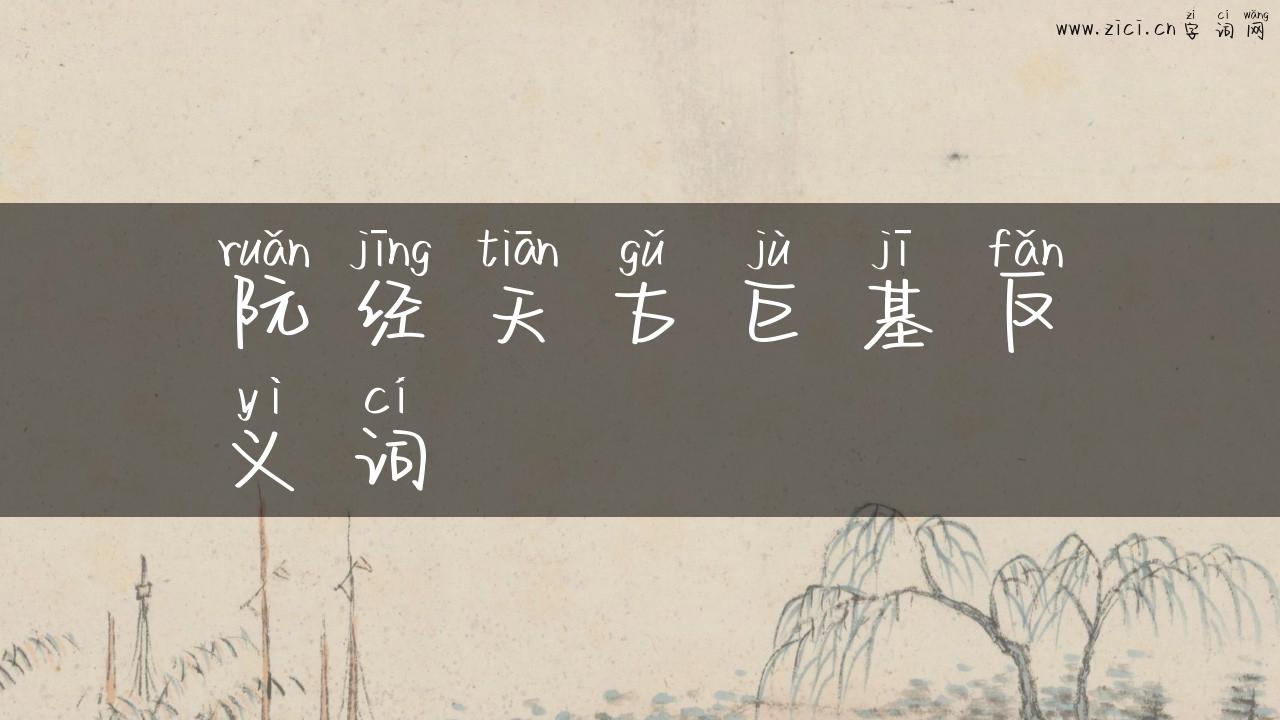 zì cí wǎng
www.zici.cn 字 词 网
ruǎn jīng tiān gǔ jù jī fǎn
阮 经 天 古 巨 基 反
yì cí
义 词